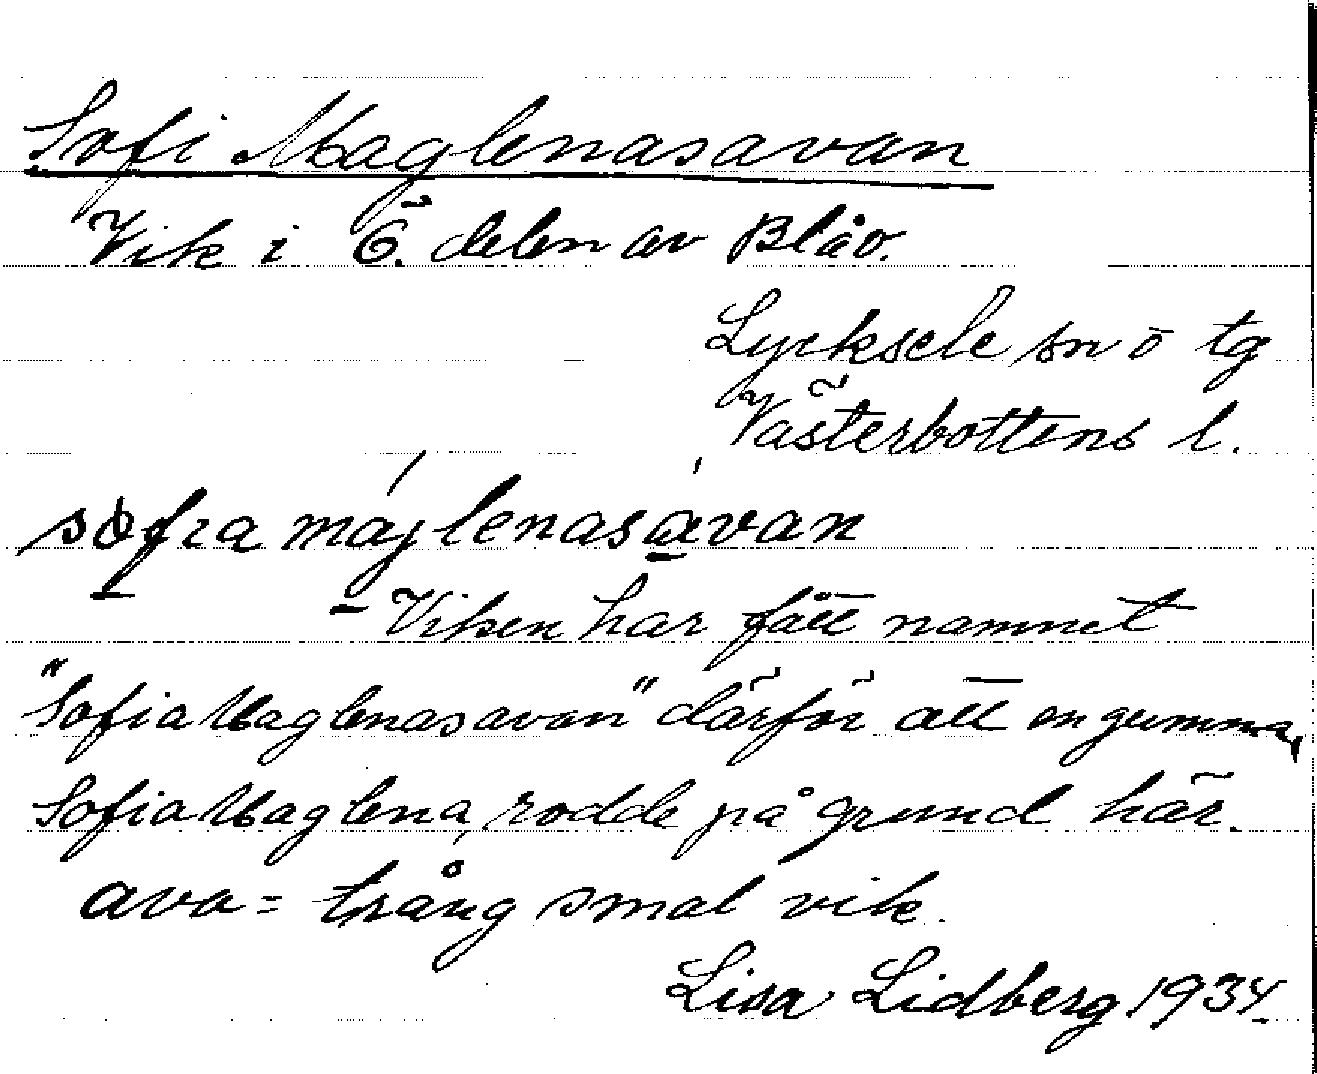 Sofi Maglenasavan
Vik i Ö. delen av Blåv.
Lycksele sn o tg
Västerbottens l.
sofia majlenasavan
Viken har fått namnet
"Sofia Maglenasavan" därför att en gumma,
Sofia Maglena, rodde på grund här.
ava = trång smal vik.
Lisa Lidberg 1934.